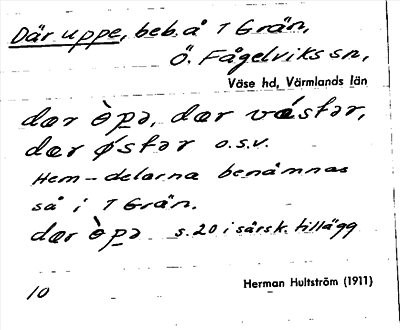 Där uppe, beb. å 1 Grän,
Ö. Fågelviks sn,
Väse hd, Värmlands län
dær ò̀pə, dær vǽstər,
dær ǿstər o.s.v.
Hem-delarna benämnas
så i 1 Grän.
dær ò̀pə s. 20 i särsk. tillägg
10
Herman Hultström (1911)